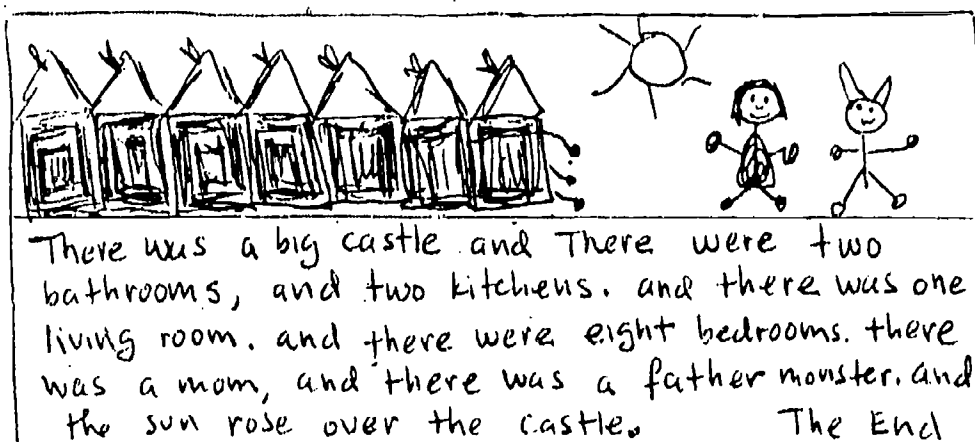 There was a big castle and There were two
bathrooms, and two kitchens. and there was one
living room. and there were eight bedrooms. there
was a mom, and there was a father monster. and
the sun rose over the castle. The End